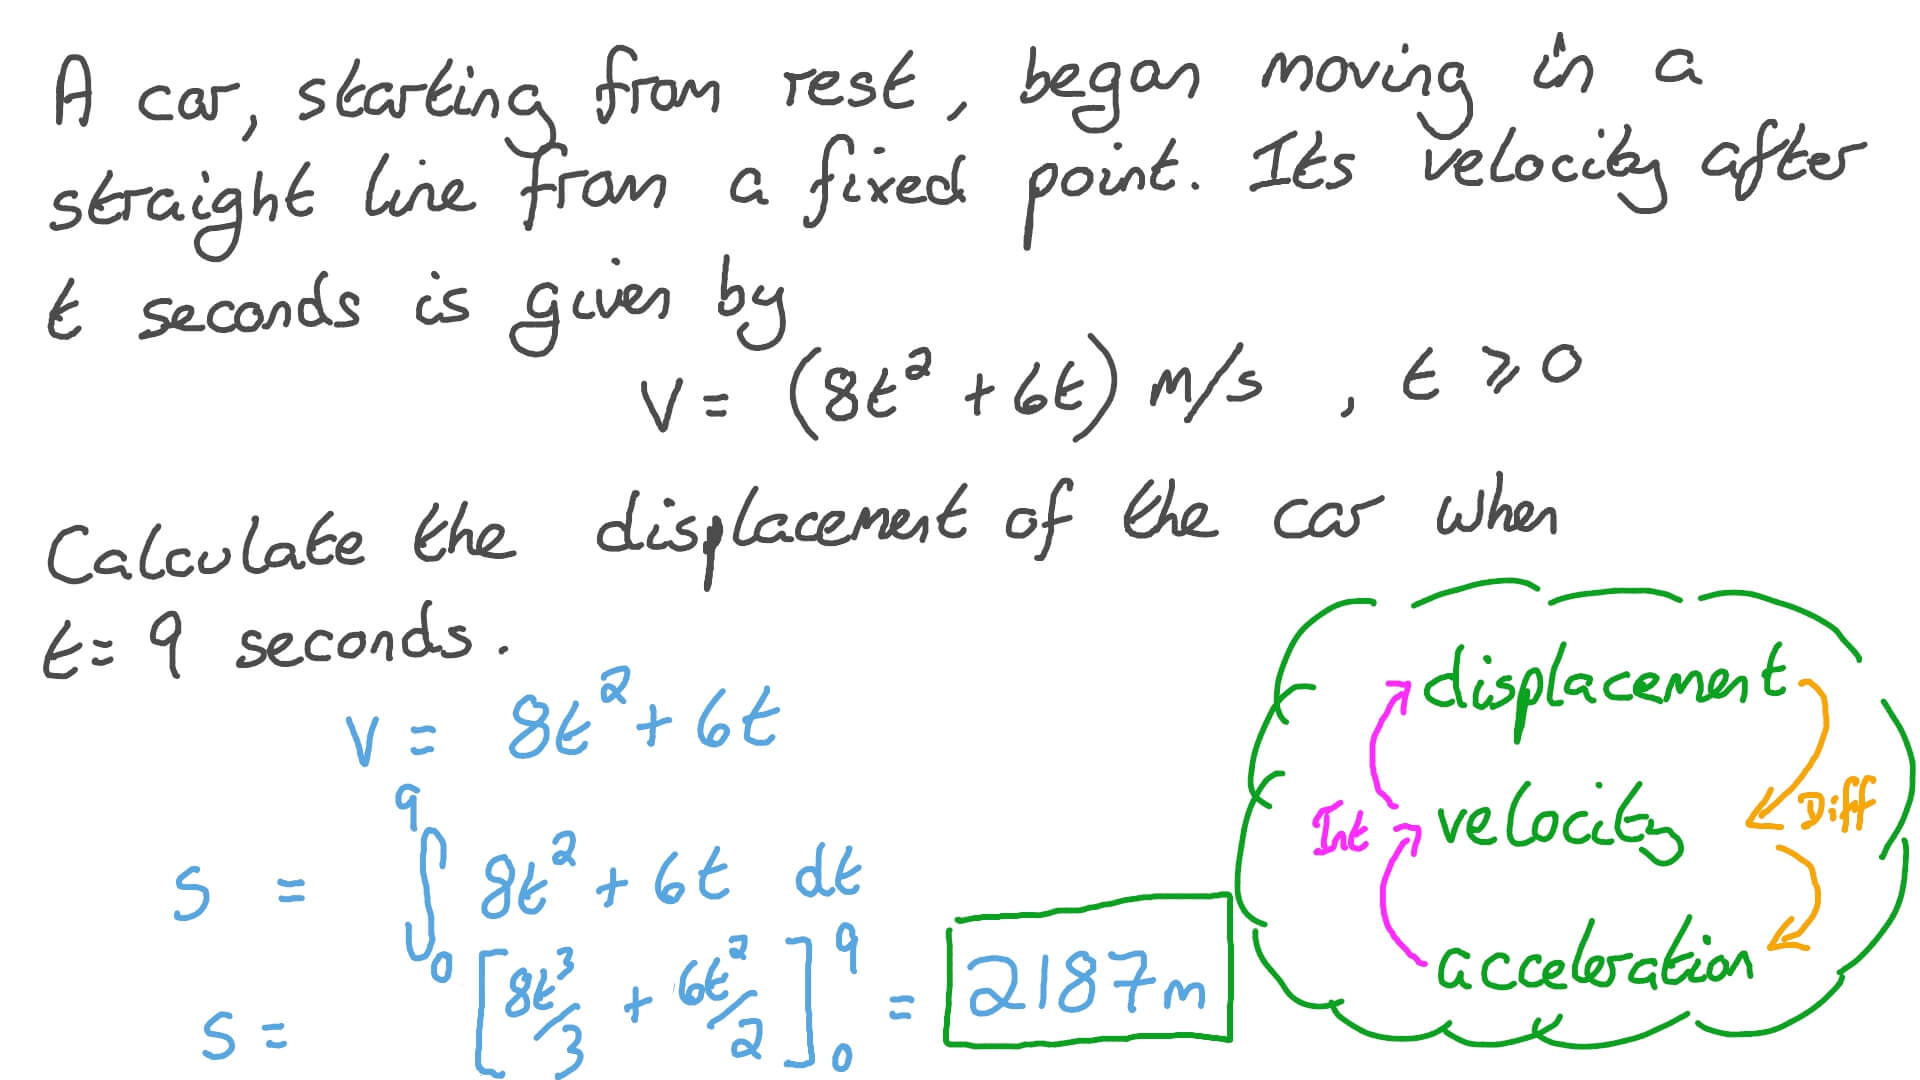 A car, starting from rest, began moving in a
straight line from a fixed point. Its velocity after
t seconds is given by
V = (8t² + 6t) m/s , t ⩾ 0
Calculate the displacement of the car when
t = 9 seconds.
V = 8t² + 6t
s = ∫₀⁹ 8t² + 6t dt
s = [8t³/3 + 6t²/2]₀⁹ = 2187m
displacement
Int velocity Diff
acceleration